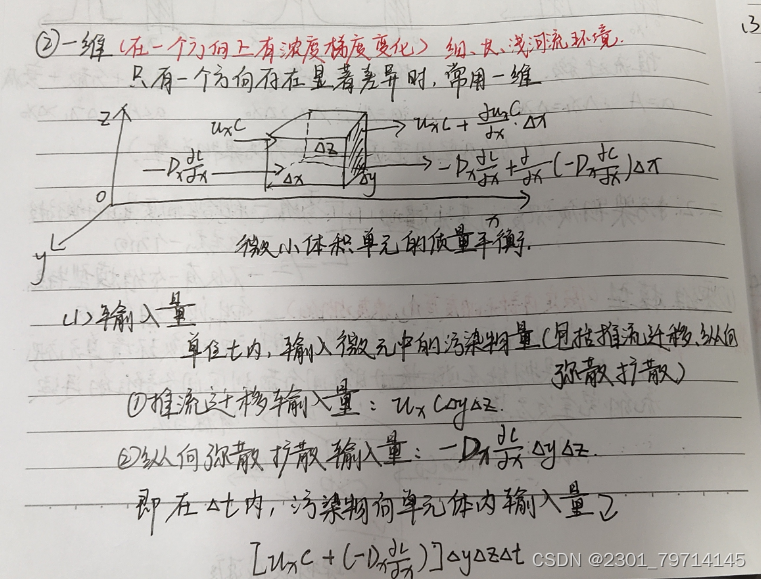 ②一维（在一个方向上有浓度梯度变化）细、长、浅河流环境.
只有一个方向存在显著差异时，常用一维
Z
uxC
uxC + ∂uxC/∂x · Δx
Δz
-Dx ∂C/∂x
-Dx ∂C/∂x + ∂/∂x (-Dx ∂C/∂x) Δx
Δx
Δy
O
x
y
微小体积单元的质量平衡.
(1) 输入量
单位t内，输入微元中的污染物量（包括推流迁移、纵向
弥散扩散）
①推流迁移输入量：uxCΔyΔz.
②纵向弥散扩散输入量：-Dx ∂C/∂x ΔyΔz.
即在Δt内，污染物向单元体内输入量
[uxC + (-Dx ∂C/∂x)] ΔyΔzΔt
CSDN @2301_79714145